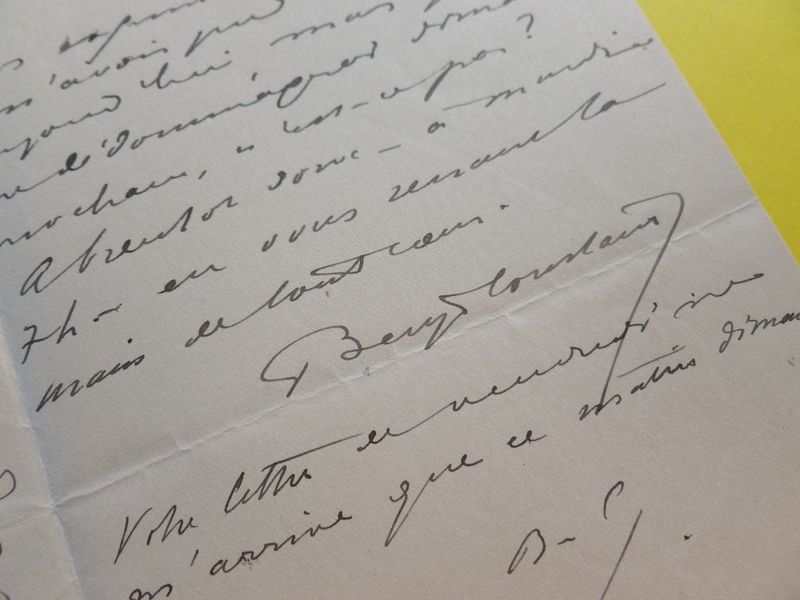 n'avais pu
aujourd'hui mais
de dommages
prochain, n'est-ce pas?
A bientôt donc - à mardi
7h - en vous serrant la
main de tout cœur.
Benj Constant
Votre lettre de vendredi ne
m'arrive que ce matin diman
B-C.